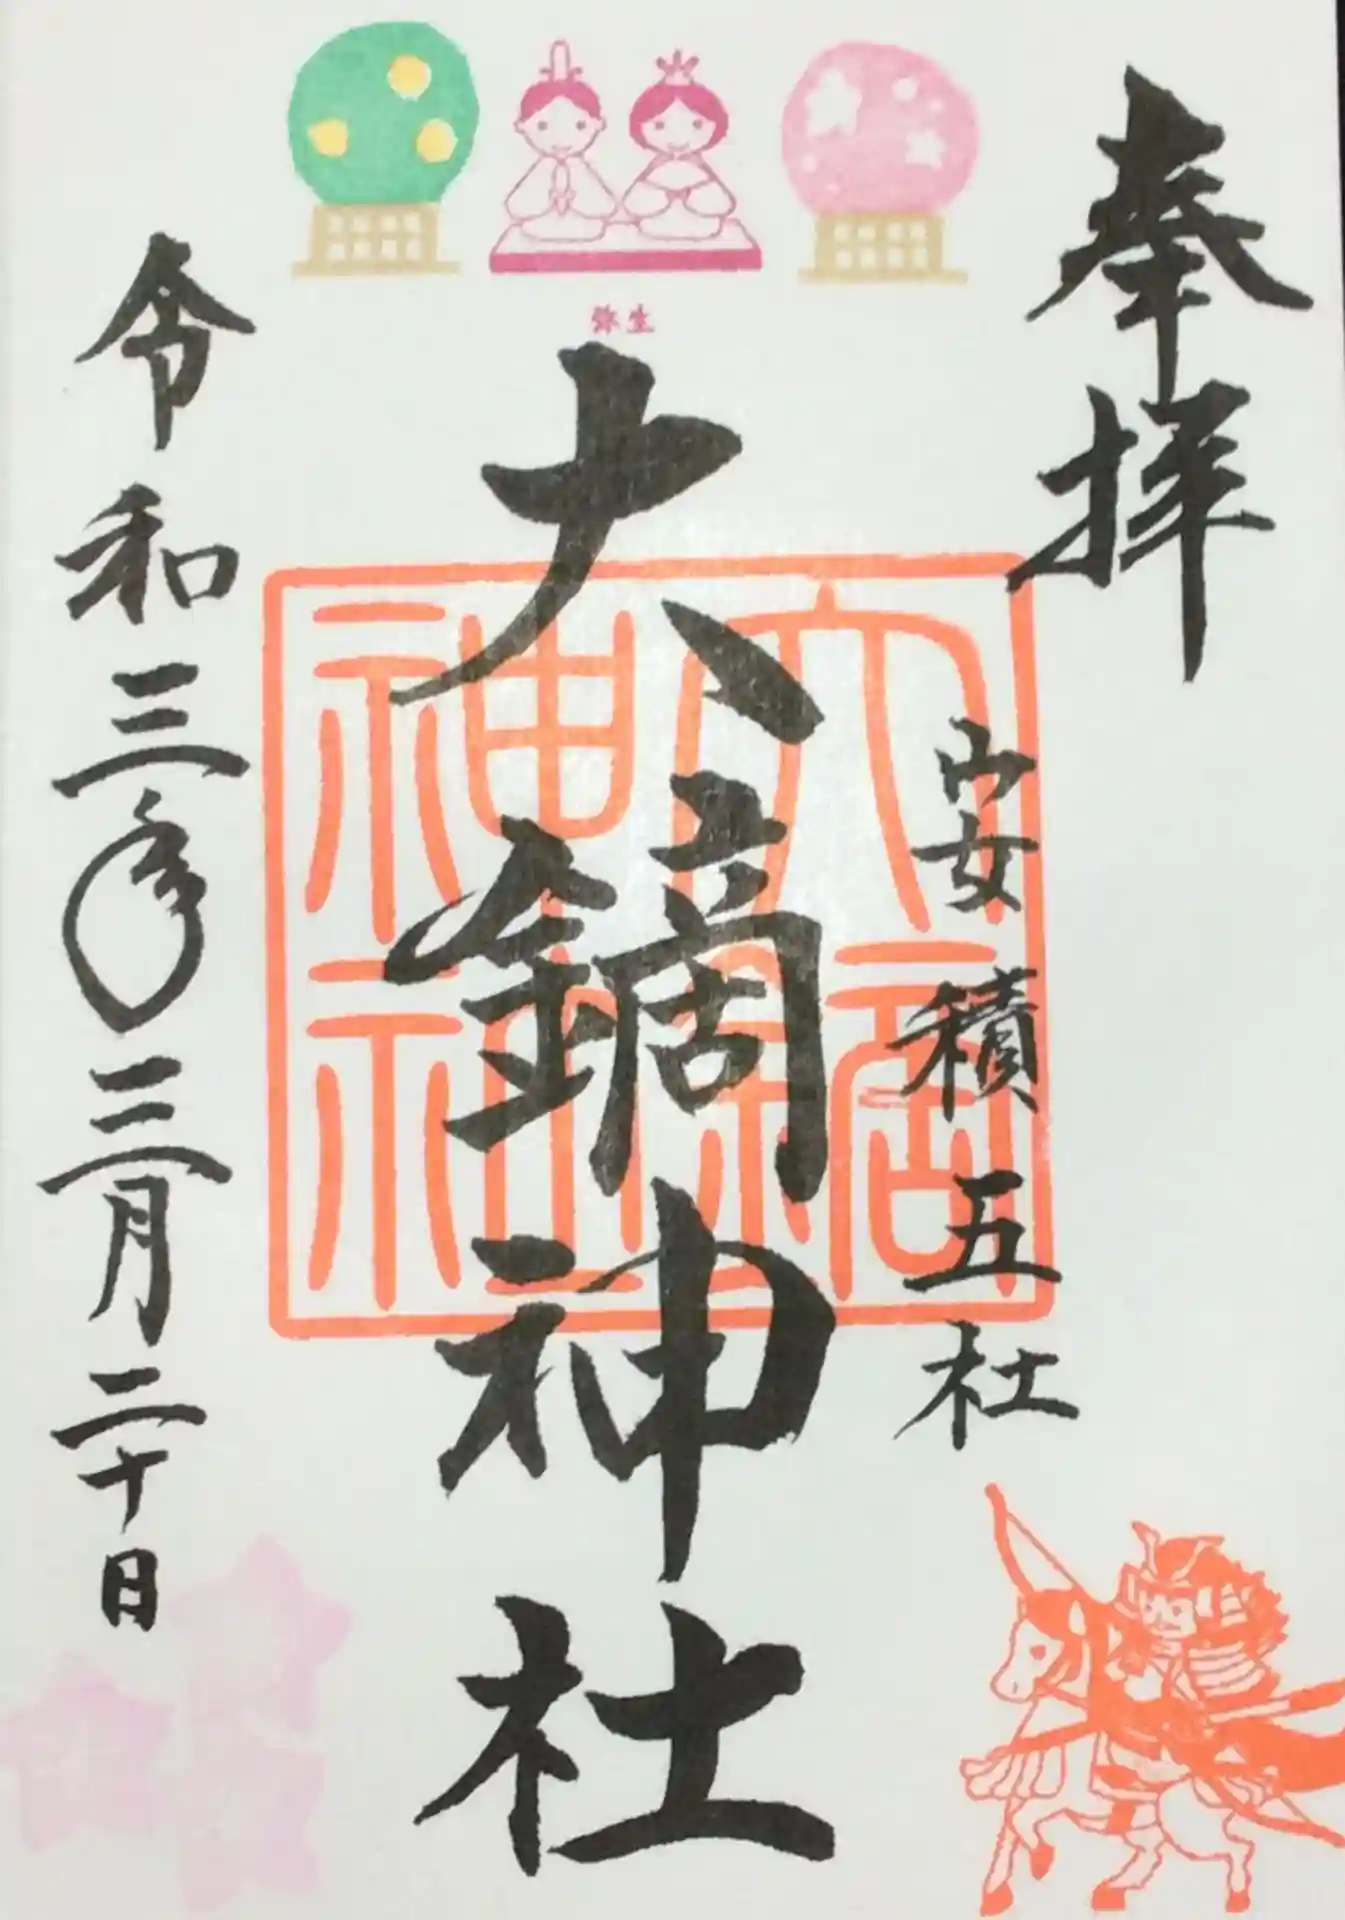 奉拝
安積五社
弥生
大鏑神社
大鏑神社
令和三年三月二十日